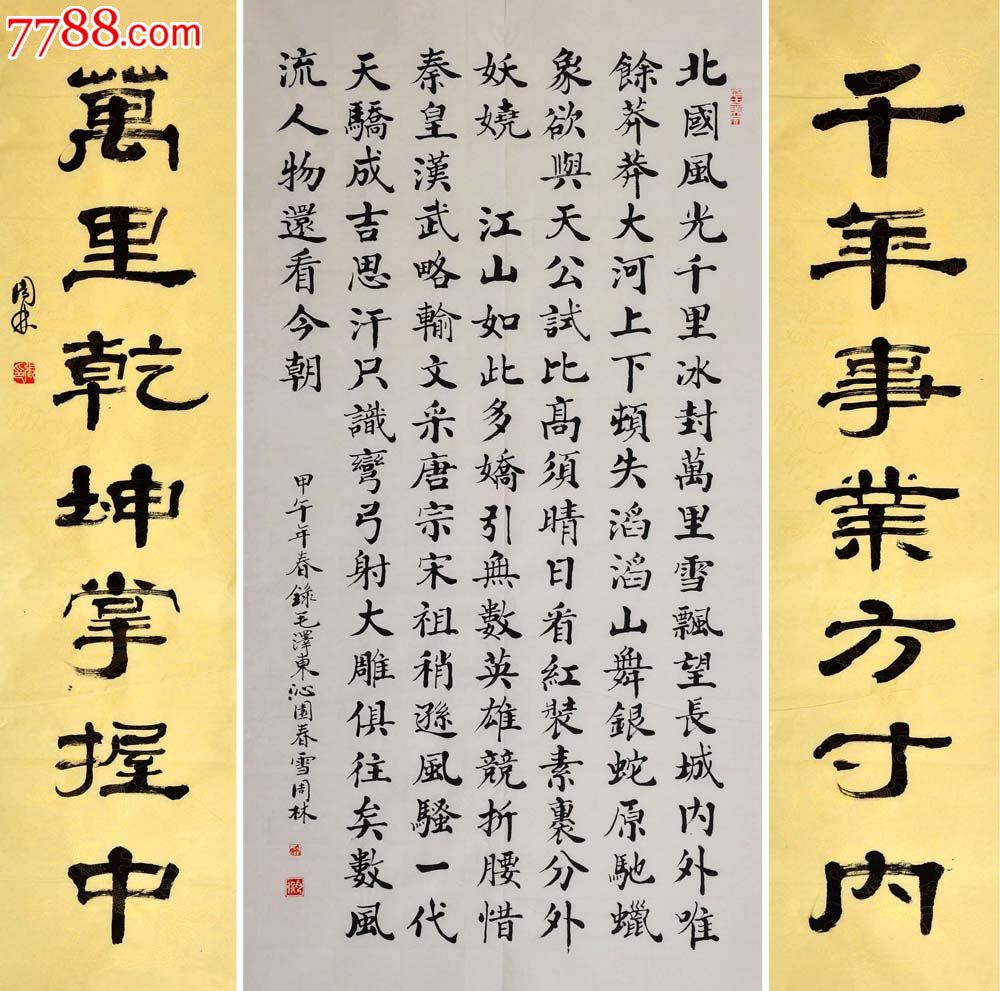 7788.com
千年事業方寸内
北國風光千里冰封萬里雪飄望長城内外唯
餘莽莽大河上下頓失滔滔山舞銀蛇原馳蠟
象欲與天公試比高須晴日看紅裝素裹分外
妖嬈 江山如此多嬌引無數英雄競折腰惜
秦皇漢武略輸文采唐宗宋祖稍遜風騷一代
天驕成吉思汗只識彎弓射大雕俱往矣數風
流人物還看今朝
甲午年春錄毛澤東沁園春雪周林
萬里乾坤掌握中
周林